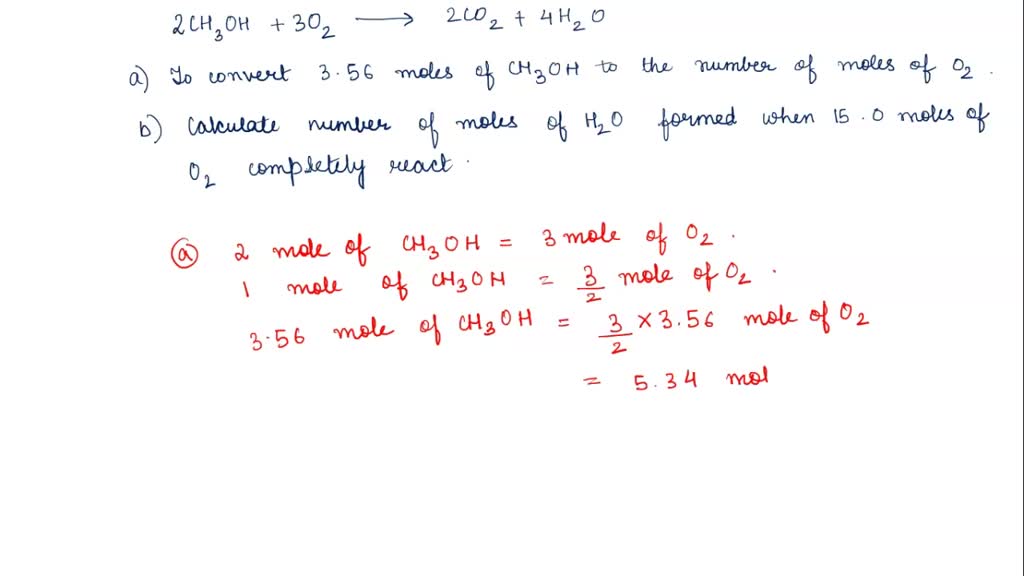 2CH₃OH + 3O₂ ⟶ 2CO₂ + 4H₂O
a) To convert 3.56 moles of CH₃OH to the number of moles of O₂.
b) Calculate number of moles of H₂O formed when 15.0 moles of
O₂ completely react.
ⓐ 2 mole of CH₃OH = 3 mole of O₂.
1 mole of CH₃OH = 3/2 mole of O₂.
3.56 mole of CH₃OH = 3/2 × 3.56 mole of O₂
= 5.34 mol